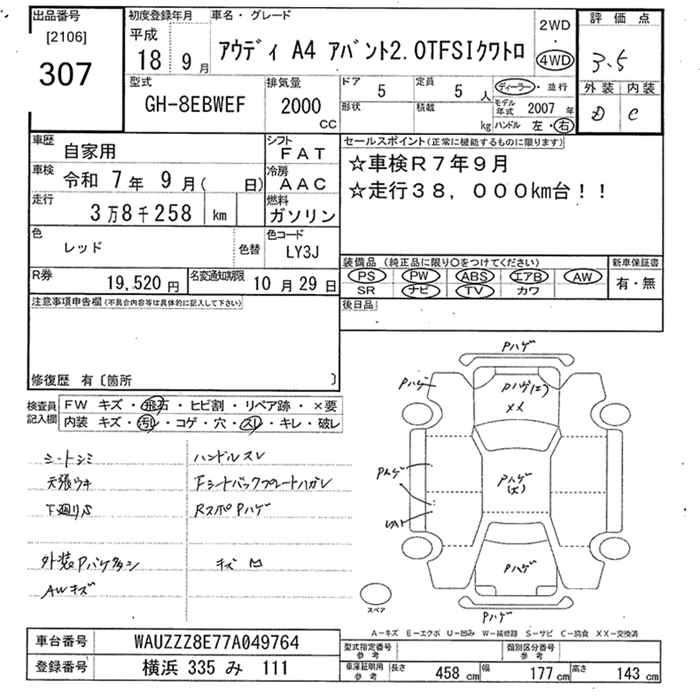 出品番号 初度登録年月 車名・グレード 2WD 評価点
[2106] 平成 アウディ A4 アバント2.0TFSIクワトロ 4WD 3.5
307 18 9 月
型式 排気量 ドア 5 定員 5 人 ディーラー・並行 外装 内装
GH-8EBWEF 2000 cc 形状 積載 kg モデル年式 2007 年 D C
ハンドル 左・右
車歴 自家用 シフト FAT セールスポイント(正常に機能するものに限ります)
車検 令和 7年 9月( 日) 冷房 AAC ☆車検R7年9月
走行 3万8千258 km 燃料 ガソリン ☆走行38,000km台!!
色 レッド 色替 色コード LY3J
装備品(純正品に限り○をつけてください) 新車保証書
R券 19,520円 名変通知期限 10月29日 PS PW ABS エアB AW 有・無
SR ナビ TV カワ
注意事項申告欄(不具合内容等は具体的に記入して下さい) 後日品
修復歴 有〔箇所 〕
検査員記入欄 FW キズ・飛石・ヒビ割・リペア跡・×要
内装 キズ・汚レ・コゲ・穴・スレ・キレ・破レ
シートシミ ハンドルスレ
天張ウキ Fシートバックプレートハガレ
下廻りS RスポPハゲ
外装Pハゲ キズ凹
AWキズ
Pハゲ
Pハゲ Pハゲ(エ)
XX
Pハゲ Pハゲ
(大)
Pハゲ
スペア Pハゲ
A-キズ E-エクボ U-凹み W-補修跡 S-サビ C-腐食 XX-交換済
車台番号 WAUZZZ8E77A049764 型式指定番号参考 類別区分番号参考
登録番号 横浜 335 み 111 車庫証明用参考 長さ 458 cm 幅 177 cm 高さ 143 cm